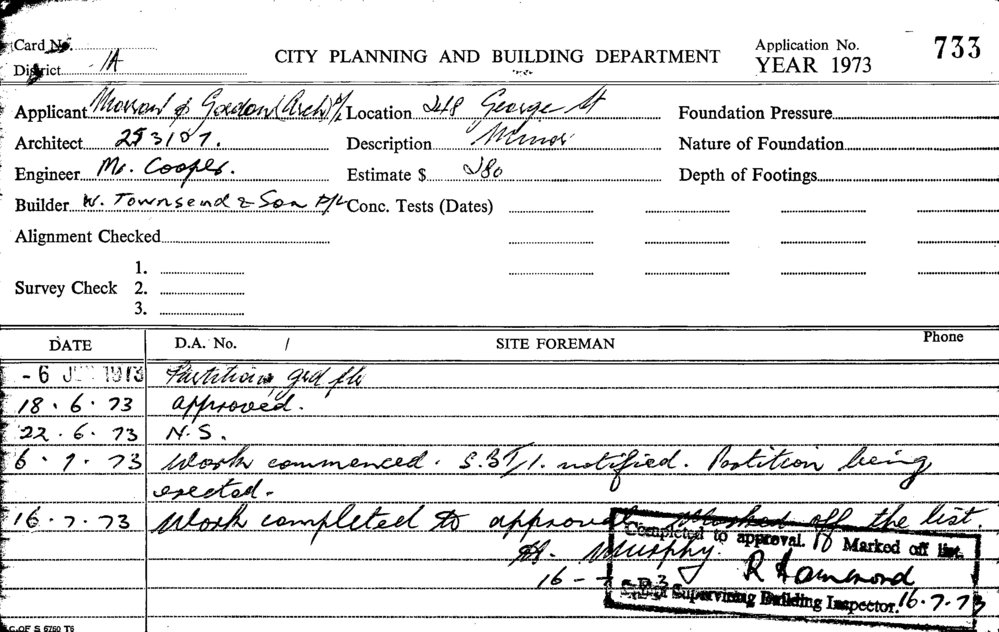 Card No.
CITY PLANNING AND BUILDING DEPARTMENT
Application No. 733
District 1A
YEAR 1973
Applicant Morrow & Gordon (Arch) P/L Location 248 George St Foundation Pressure
Architect 253107. Description Minor Nature of Foundation
Engineer Mr. Cooper. Estimate $ 280 Depth of Footings
Builder W. Townsend & Son P/L Conc. Tests (Dates)
Alignment Checked
1.
Survey Check 2.
3.
DATE D.A. No. / SITE FOREMAN Phone
- 6 1973 Partitions grd flr
18.6.73 approved.
22.6.73 N.S.
6.7.73 Work commenced. S.B.I. notified. Partition being
erected.
16.7.73 Work completed to approval Marked off the list.
Completed to approval. Marked off list.
Murphy.
R Hammond
16-7-73
Supervising Building Inspector. 16.7.73
C. OF S 6760 T6